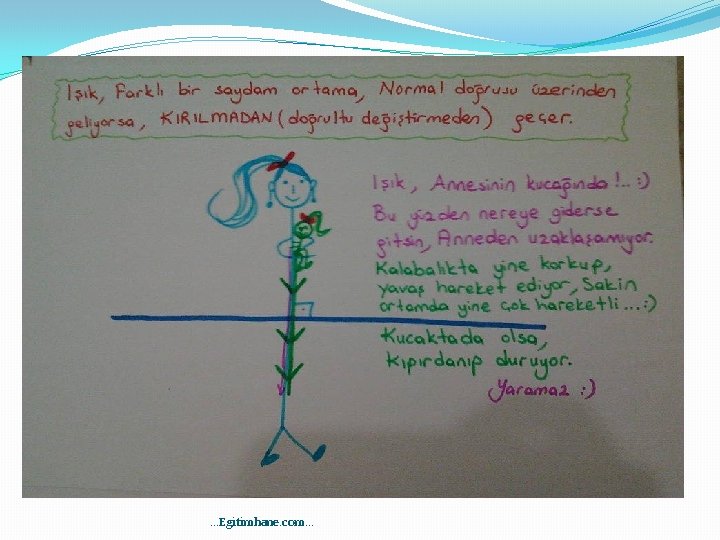 Işık, Farklı bir saydam ortama, Normal doğrusu üzerinden
geliyorsa, KIRILMADAN (doğrultu değiştirmeden) geçer.
Işık, Annesinin kucağında!.. :)
Bu yüzden nereye giderse
gitsin, Anneden uzaklaşamıyor.
Kalabalıkta yine korkup,
yavaş hareket ediyor, Sakin
ortamda yine çok hareketli...:)
Kucaktada olsa,
kıpırdanıp duruyor.
Yaramaz :)
...Egitimhane.com...